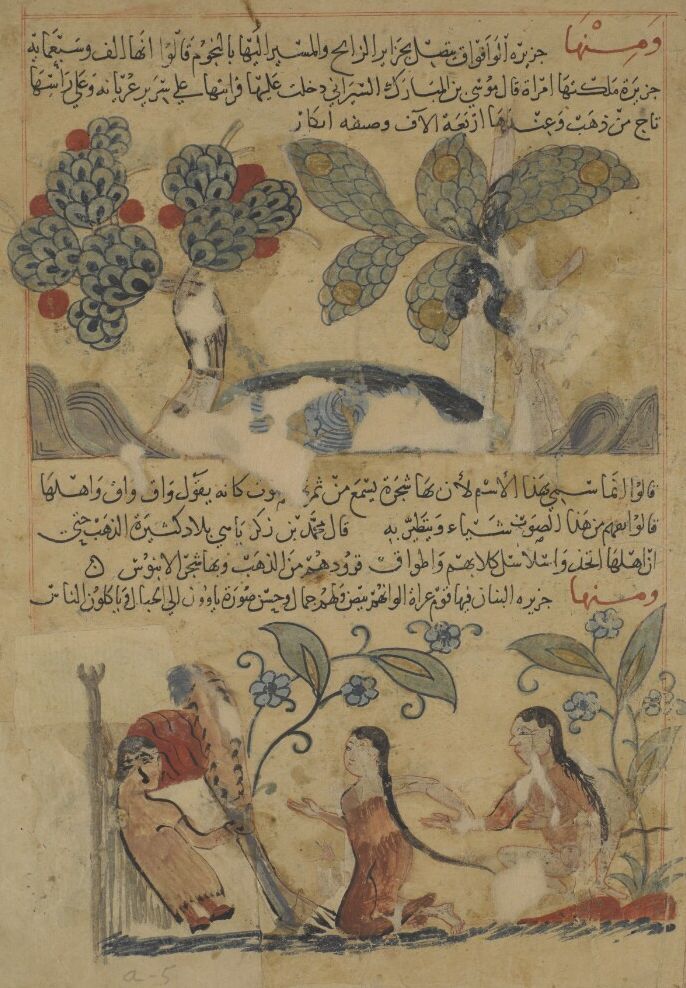 ومنها جزيرة الواقواق يتصل بجزاير الزابج والمسير اليها بالنجوم قالوا انها الف وسبعمايه
جزيرة ملكتها امراة قال موسى بن المبارك السيرافي دخلت عليها فرايتها على سرير عريانه وعلى راسها
تاج من ذهب وعندها اربعة الاف وصيفه ابكار
قالوا انما سمي بهذا الاسم لان بها شجرة يسمع من ثمرها صوت كانه يقول واق واق واهلها
قالوا يفهم من هذا الصوت شياء ويتطير به قال محمد بن زكريا هي بلاد كثيرة الذهب حتى
ان اهلها اتخذوا سلاسل كلابهم واطواق قرودهم من الذهب وبها شجر الابنوس
ومنها جزيره البنان فيها قوم عراة الوانهم بيض ولهم جمال وحسن صورة ياوون الى الجبال وياكلون الناس
a-5